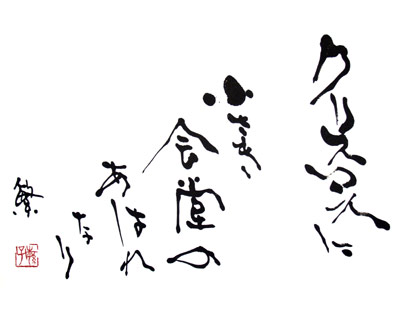 クリスマスに
小さき
会堂の
あはれ
なり
繁